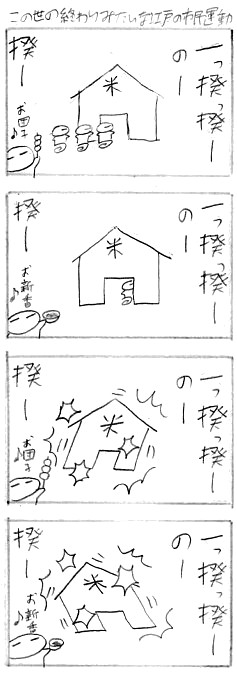 この世の終わりみたいな江戸の市民運動
一っ揆っ揆ー
のー
揆ー
お団子♪
米
一っ揆っ揆ー
のー
揆ー
お新香♪
米
一っ揆っ揆ー
のー
揆ー
お団子♪
米
一っ揆っ揆ー
のー
揆ー
お新香♪
米